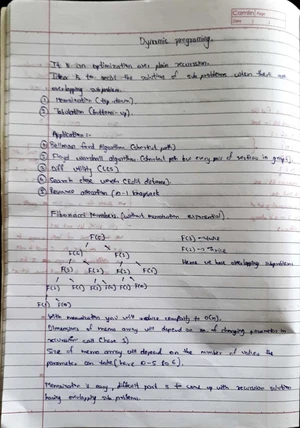 Camlin Page
Date
Dynamic programing.
It is an optimization over plain recursion.
Idea is to reuse the solution of sub problems when there are
overlapping subproblem.
① Memoization (top down).
② Tabulation (bottom-up).
Application:-
Bellman ford algorithm (shortest path)
Floyd warshall algorithm (shortest path for every pair of vertices in graph).
③ Diff utility (LCS)
④ Search close words (Edit distance).
⑤ Resource allocation (0-1 knapsack
Fibonacci Numbers. (without memoization exponential).
F(5)
F(4) F(3)
F(3) F(2) F(2) F(1)
F(2) F(1) F(1) F(0) F(1) F(0)
F(1) F(0)
F(3) → twice
F(2) → thrice
Hence we have overlapping subproblems
With memoization you will reduce complexity to O(n).
Dimensions of memo array will depend on no of changing parameter in
recursive call (here 1)
Size of memo array will depend on the number of values the
parameter can take (here 0-5 so 6).
Memoization is easy, difficult part is to come up with recursion solution
having overlapping sub problems.